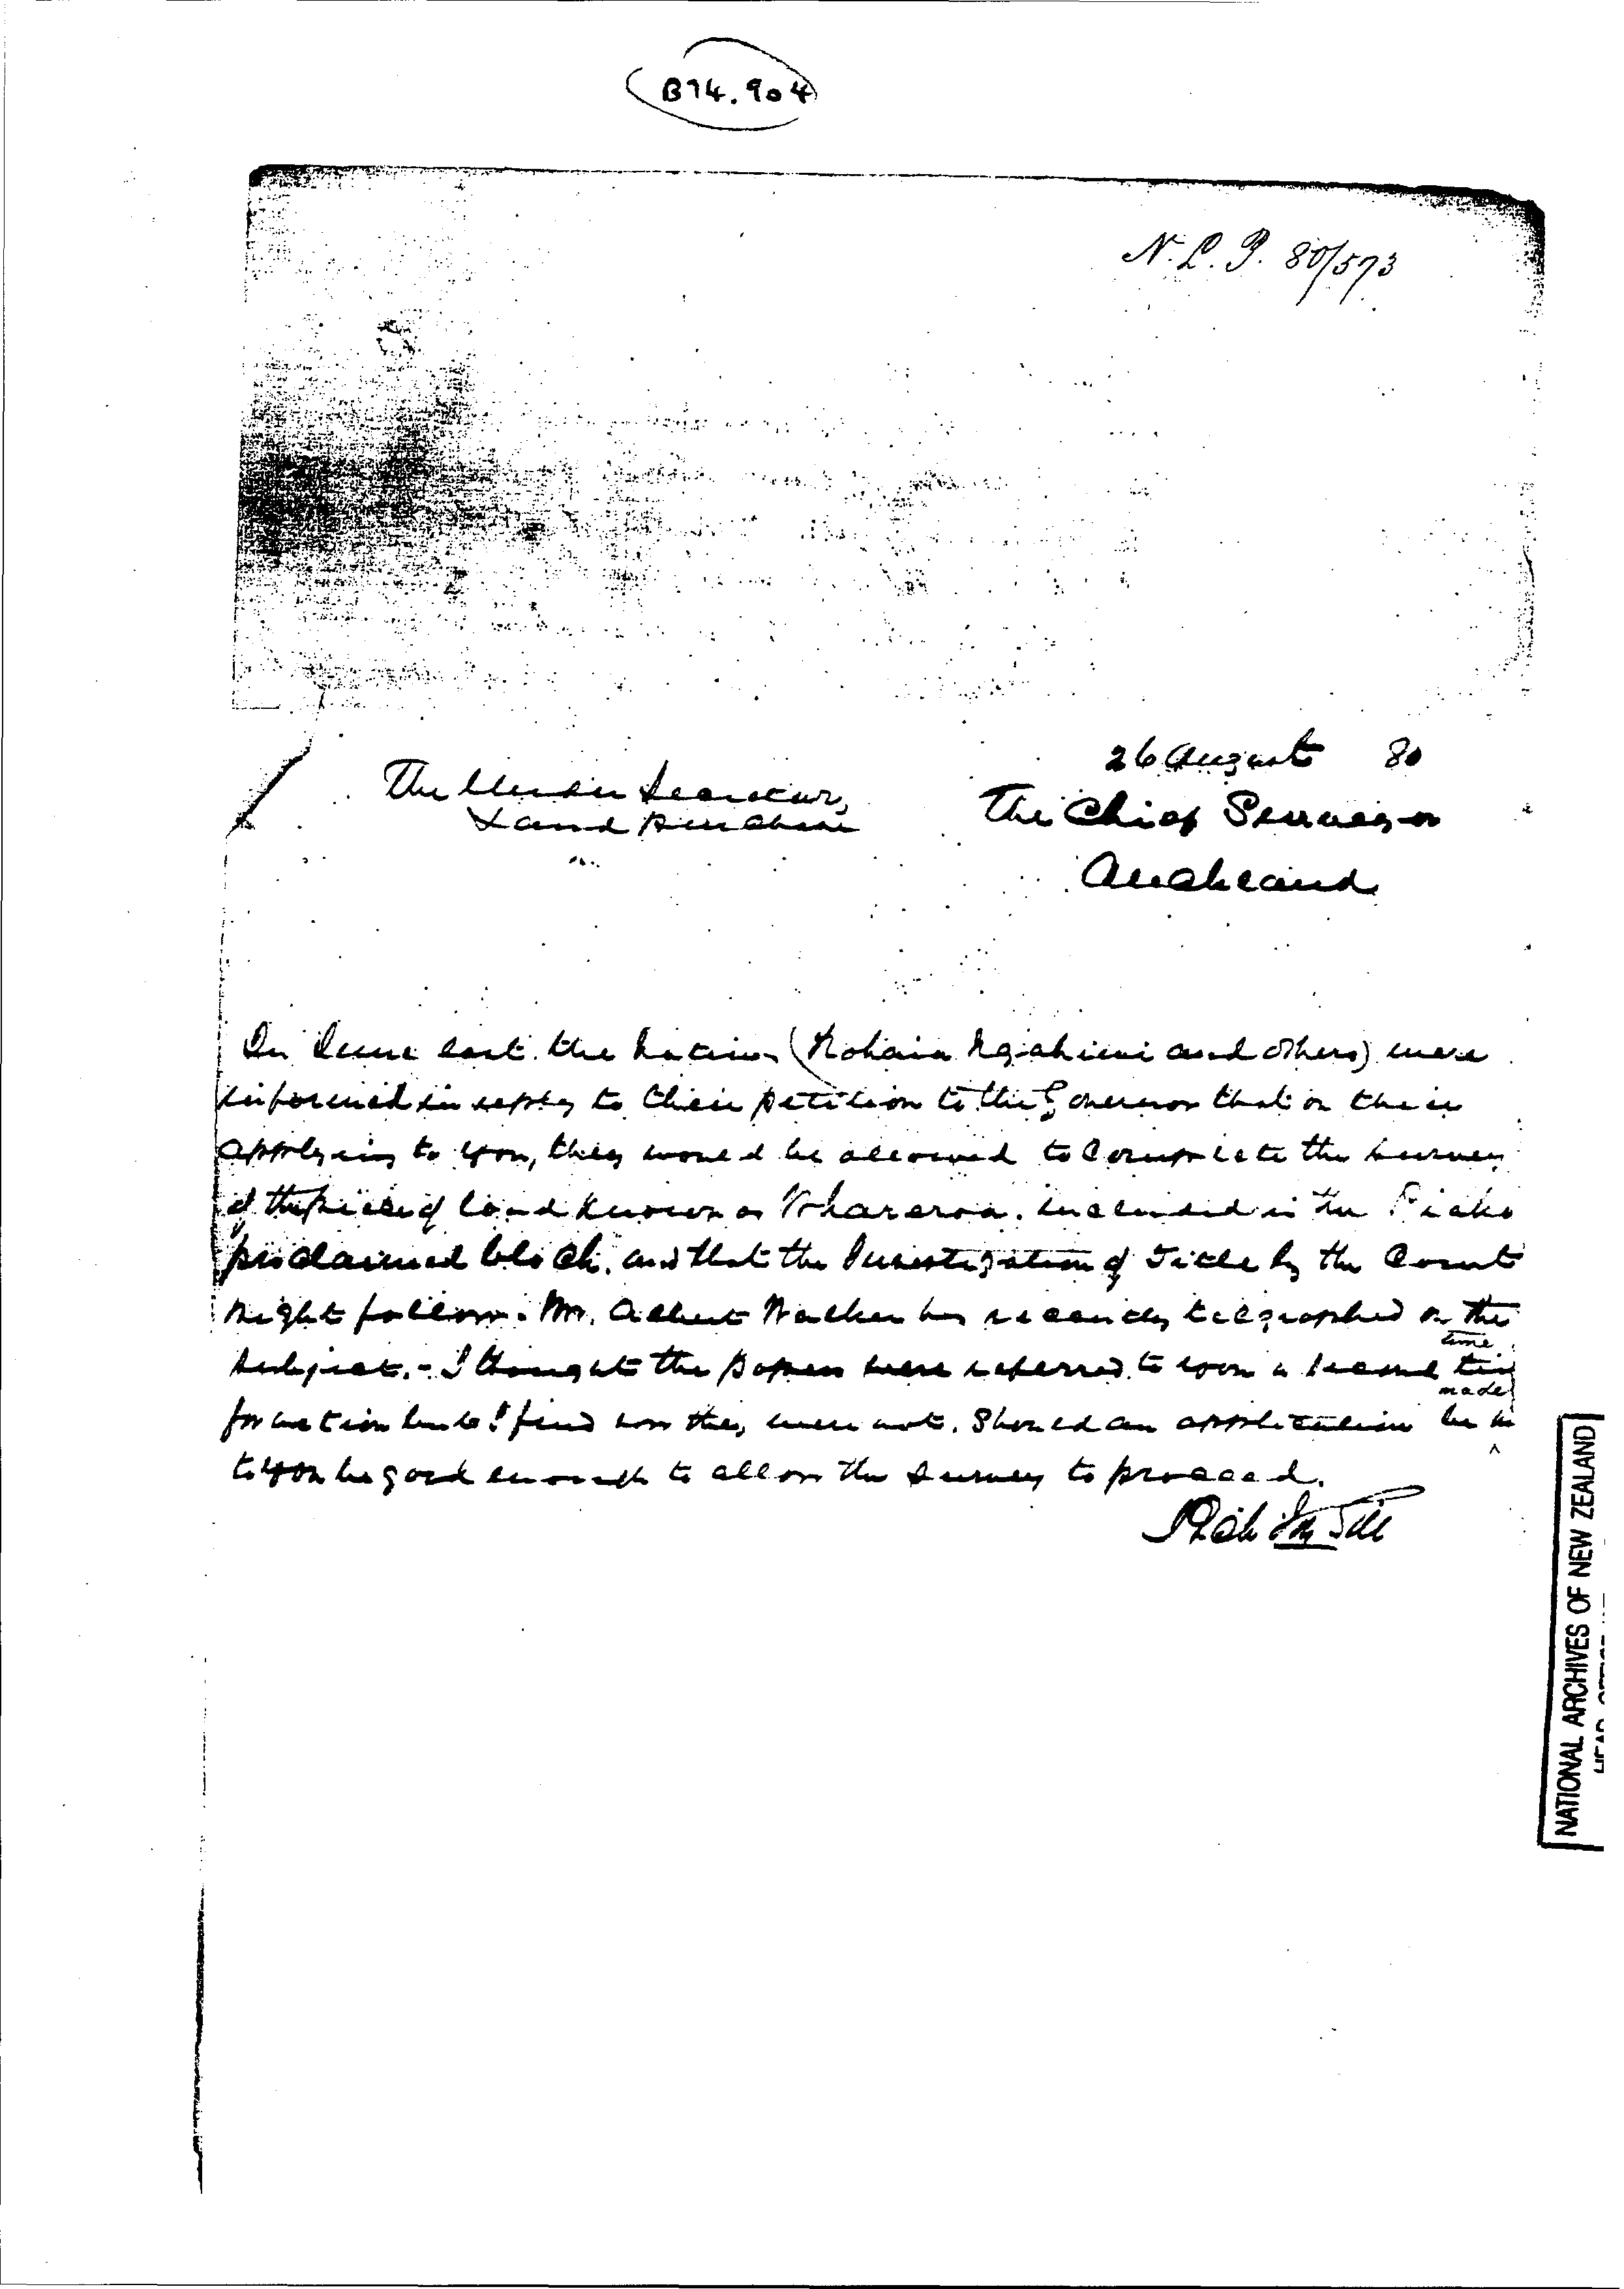 B74.904
N. L. P. 80/573
26 August 80
The Under Secretary,
Land Purchase
The Chief Surveyor
Auckland
In June last the Natives (Rohain Ngahiwi and others) were
informed in reply to their petition to the Governor that on their
applying to you, they would be allowed to Complete the survey
of the piece of land known as Wharerоа. included in the Piako
proclaimed block, and that the Investigation of Title by the Court
might follow. Mr. Albert Walker has recently telegraphed on the
subject. - I thought the papers were referred to you a second time
time
for action but I find now they were not. Should an application be
made
to you be good enough to allow the survey to proceed.
Rich Jn Gill
NATIONAL ARCHIVES OF NEW ZEALAND